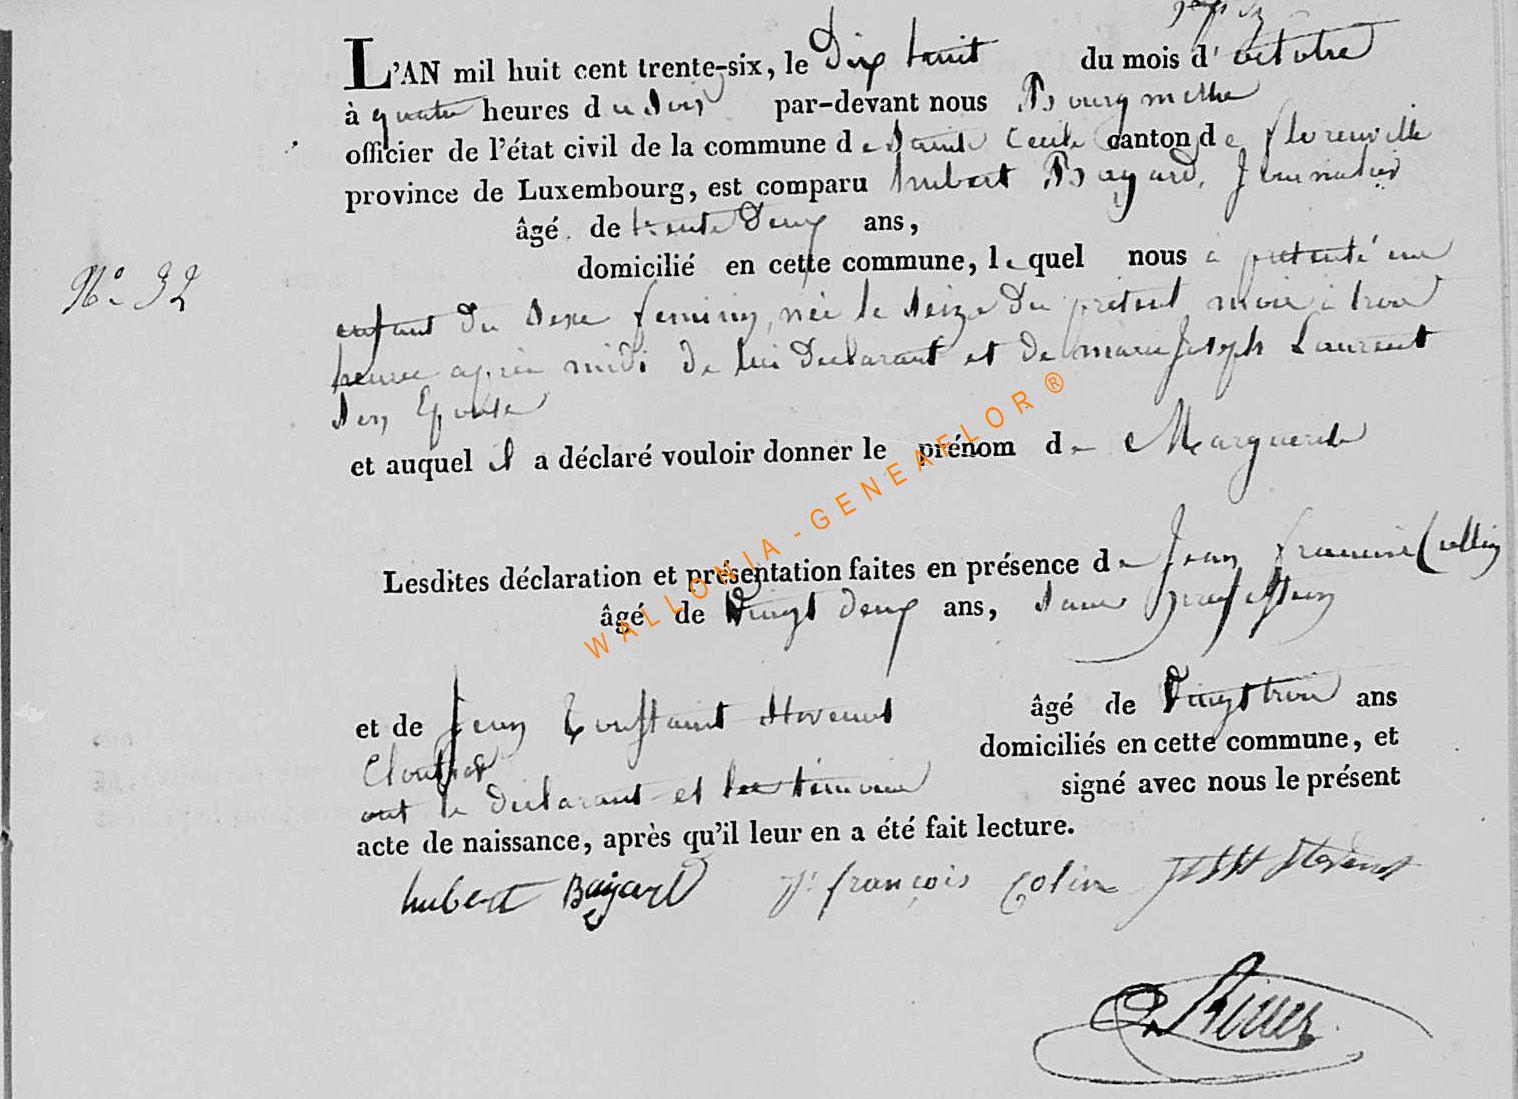 L'AN mil huit cent trente-six, le Dix huit du mois d'octobre
à quatre heures du soir par-devant nous Bourgmettre
officier de l'état civil de la commune de Sainte Cecile canton de florenville
province de Luxembourg, est comparu hubert Bayard, Journalier
âgé de trente Deux ans,
domicilié en cette commune, lequel nous a présenté un
N° 32
enfant du sexe feminin, née le seize du présent mois à trois
heures après midi de lui Declarant et de marie Joseph Laurent
son Epouse
et auquel il a déclaré vouloir donner le prénom de Marguerite
WALLONIA - GENEAFLOR ®
Lesdites déclaration et présentation faites en présence de Jean francois Collin
âgé de Vingt deux ans, sans profession
et de Jean Toussaint Stevenot âgé de Vingt trois ans
Cloutier domiciliés en cette commune, et
ont le déclarant et les témoins signé avec nous le présent
acte de naissance, après qu'il leur en a été fait lecture.
hubert Bayard Jn françois Colin Stevenot